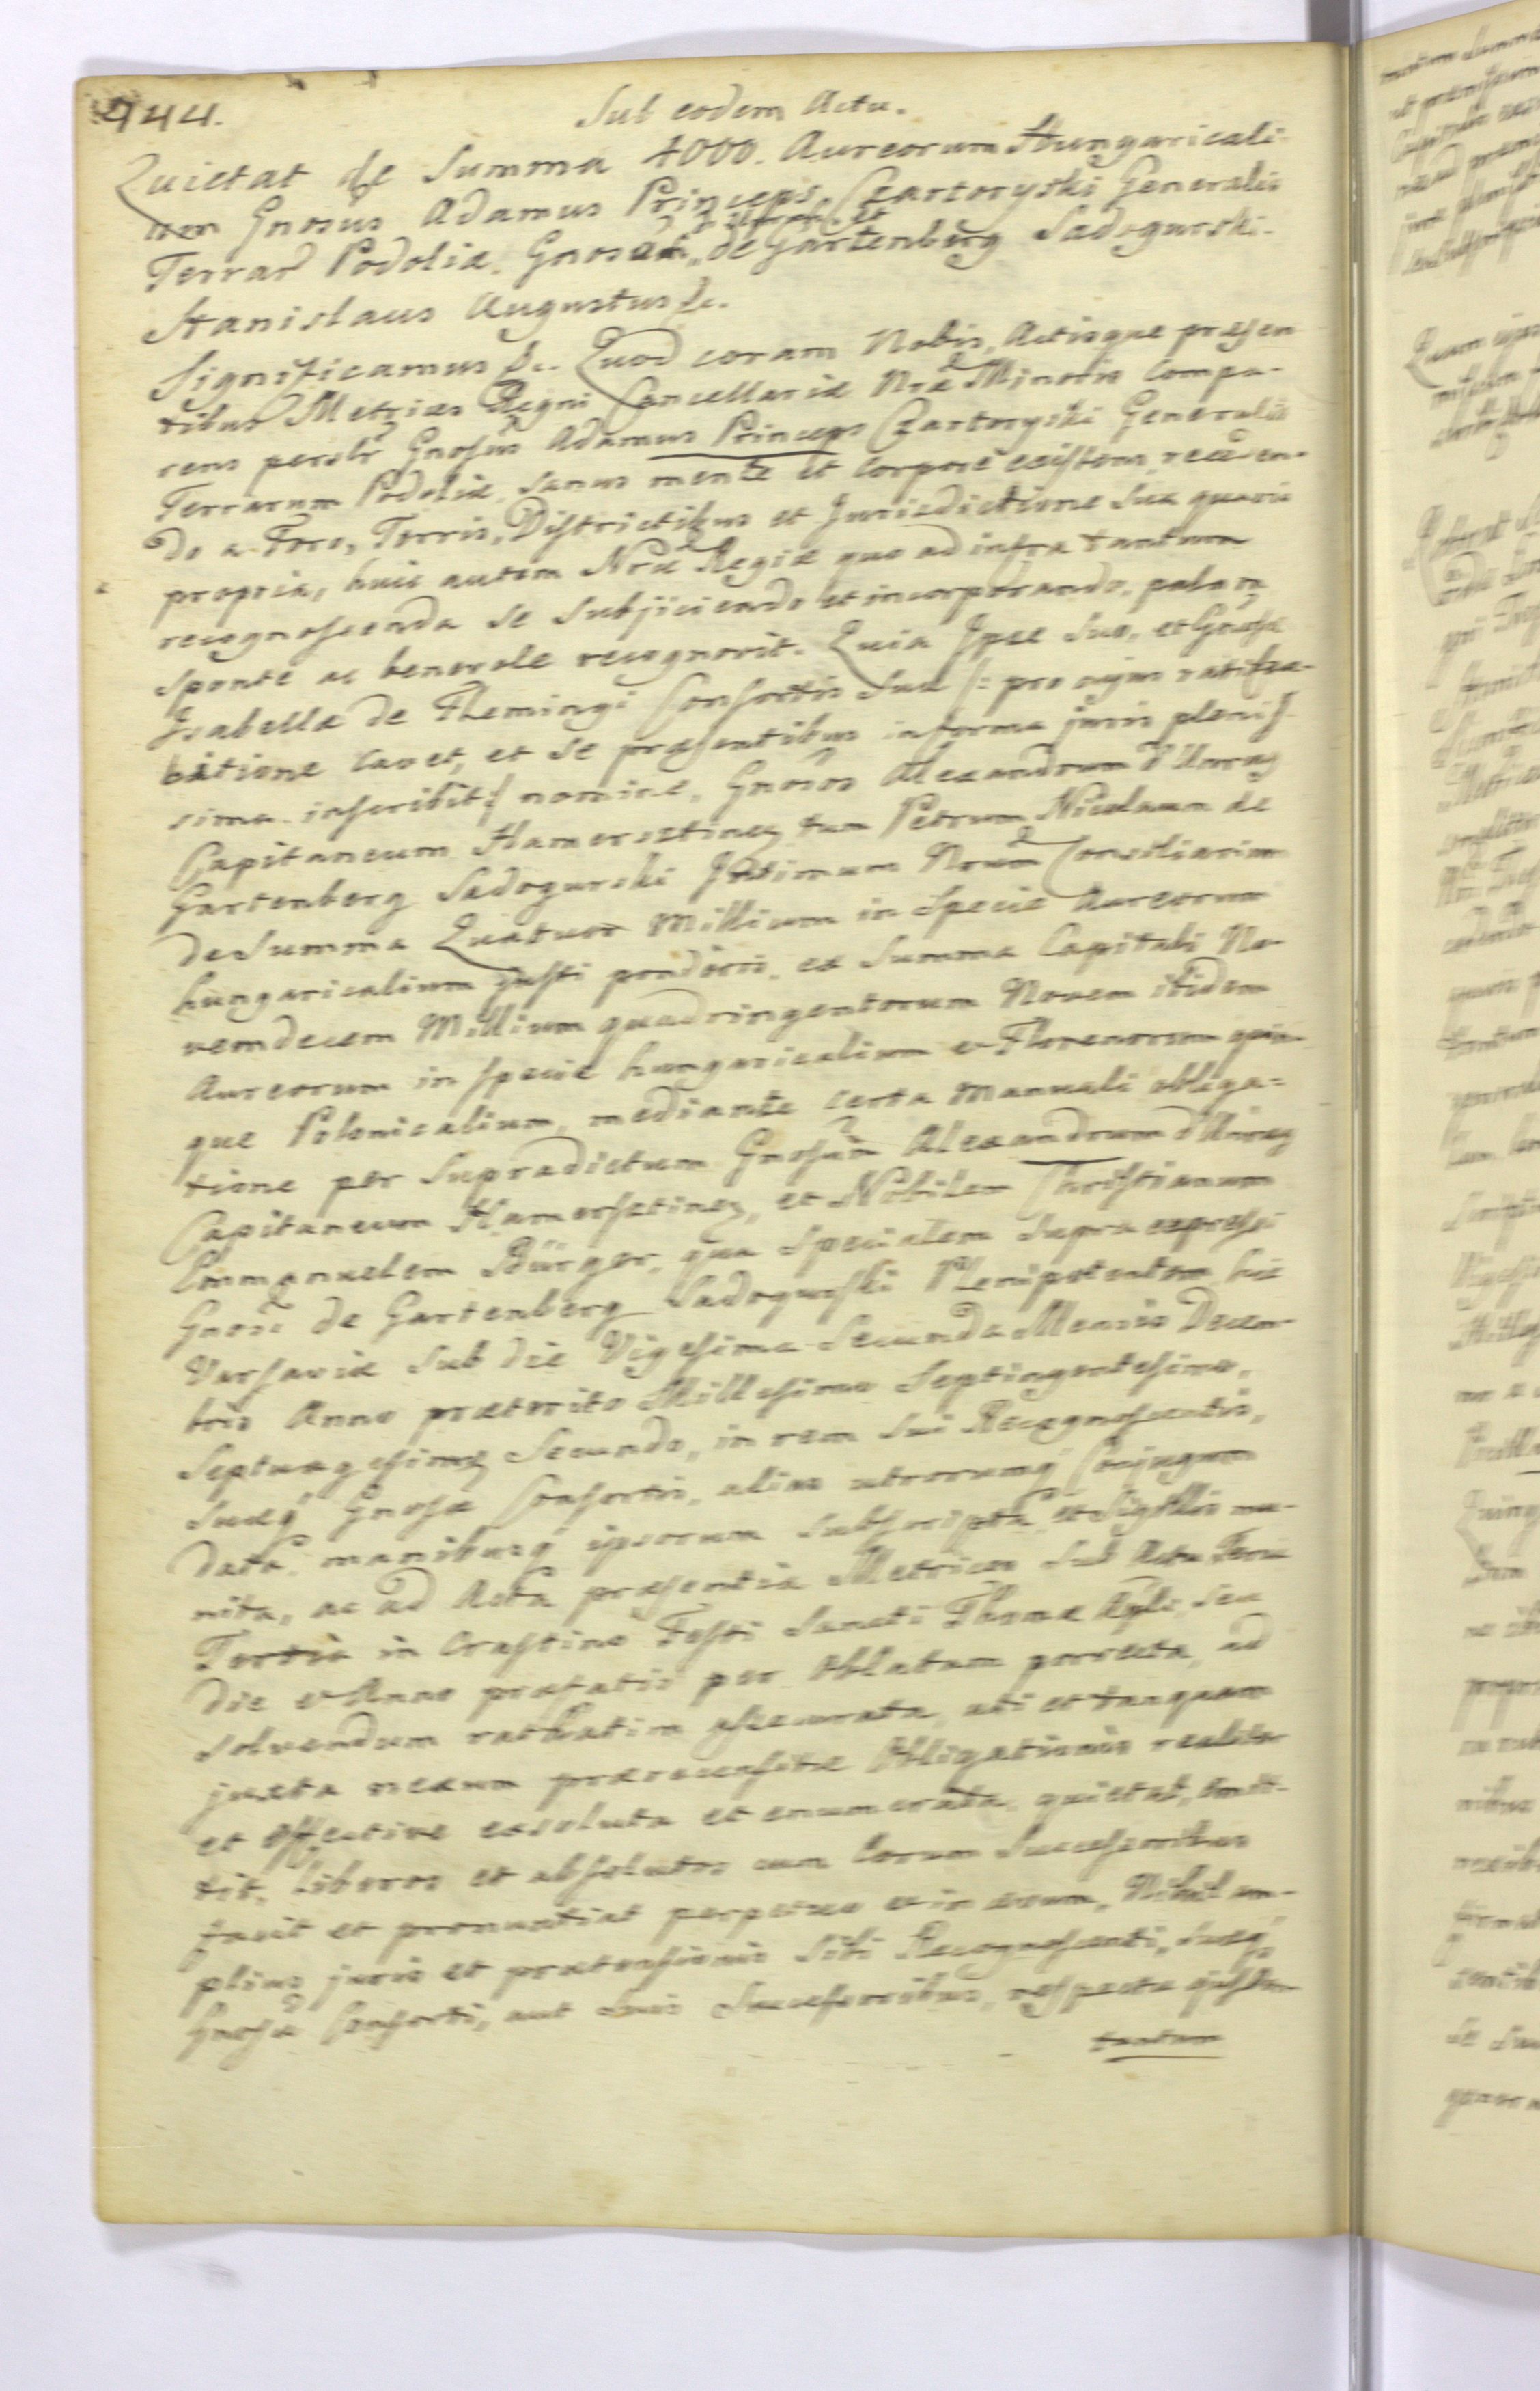 944.
Sub eodem Actu.
Quietat de Summa 4000. Aureorum Hungaricali-
um Gnosus Adamus Princeps Czartoryski Generalis
Terrar Podoliæ, Gnosum de Gartenberg Sadogurski.
Stanislaus Augustus &c.
Significamus &c. Quod coram Nobis, Actisque præsen
tibus Metrices Regni Cancellariæ Nræ Minoris Compa-
rens persolr Gnosus Adamus Princeps Czartoryski Generalis
Terrarum Podoliæ, sanus mente et corpore existens, receden-
do a Foro, Terris, Districtibus et Jurisdictione sua quavis
propria, huic autem Nræ Regiæ quo ad infra tantum
recognoscenda se subjiciendo et incorporando, palam
sponte ac benevole recognovit. Quia Ipse suo, et Gnosæ
Isabellæ de Flemingi Consortis suæ /: pro cujus ratiha-
bitione cavet, et se præsentibus in forma juris plenis
sima inscribit :/ nomine, Gnosos Alexandrum d'Unrug
Capitaneum Hamersztinen, tum Petrum Nicolaum de
Gartenberg Sadogurski Intimum Nrum Consiliarium
de Summa Quatuor Millium in Specie Aureorum
hungaricalium justi ponderis, ex Summa Capitali No-
vemdecem Millium quadringentorum Novem itidem
Aureorum in specie hungaricalium et Florenorum quin-
que Polonicalium, mediante certa Manuali obliga=
tione per supradictum Gnosum Alexandrum d'Unrug
Capitaneum Hamersztinen, et Nobilem Christianum
Emmanuelem Bürger, qua specialem supra expressi
Gnosi de Gartenberg Sadogurski Plenipotentem hic
Varsaviæ sub die Vigesima Secunda Mensis Decem-
bris Anno præterito Millesimo Septingentesimo,
Septuagesimo Secundo, in rem sui Recognoscentis,
suæq Gnosæ Consortis, alias utrorumq Conjugum
data, manibusq ipsorum subscripta, et Sigillis mu-
nita, ac ad Acta præsentia Metrices sub Actu Feria
Tertia in Crastino Festi Sancti Thomæ Apli, seu
die et Anno præfatis per Oblatam porrecta, ad
solvendum ratuatim assecurata, uti et tanquam
juxta nexum prærecensitæ Obligationis realiter
et effective exsoluta et enumerata, quietat, emit-
tit, liberos et absolutos cum Eorum Successoribus
facit et pronuntiat perpetuo et in ævum, Nihil am-
plius juris et prætensionis sibi Recognoscenti, suæq
Gnosæ Consorti, aut suis Successoribus, respectu ejusdem
tantum